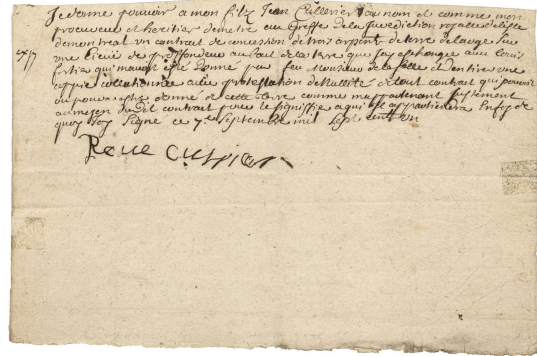 Je donne pouvoir a mon filz Jean Cullerier au nom et comme mon
procureur et heritier de metre au Greffe de la Jurediction royalle de lisle
de montreal un contrat de concession de trois arpent de terre de large sur
une lieue de proffondeur au bout de la terre que Jay eschangé aux louis
fortier qui mavoit esté donné par feu Monsieur de la salle et dentirer une
coppie colationnée avec protestation de Nullité de tout contrat qui pouroit
ou pouroit estre donné de cette terre comme mapartenant Justement
au moyen dudit contrat pour le signiffié a qui il appartiendra En foy de
quoy Jay Signé ce 7e septembre mil sept cent un
Rene cullerier